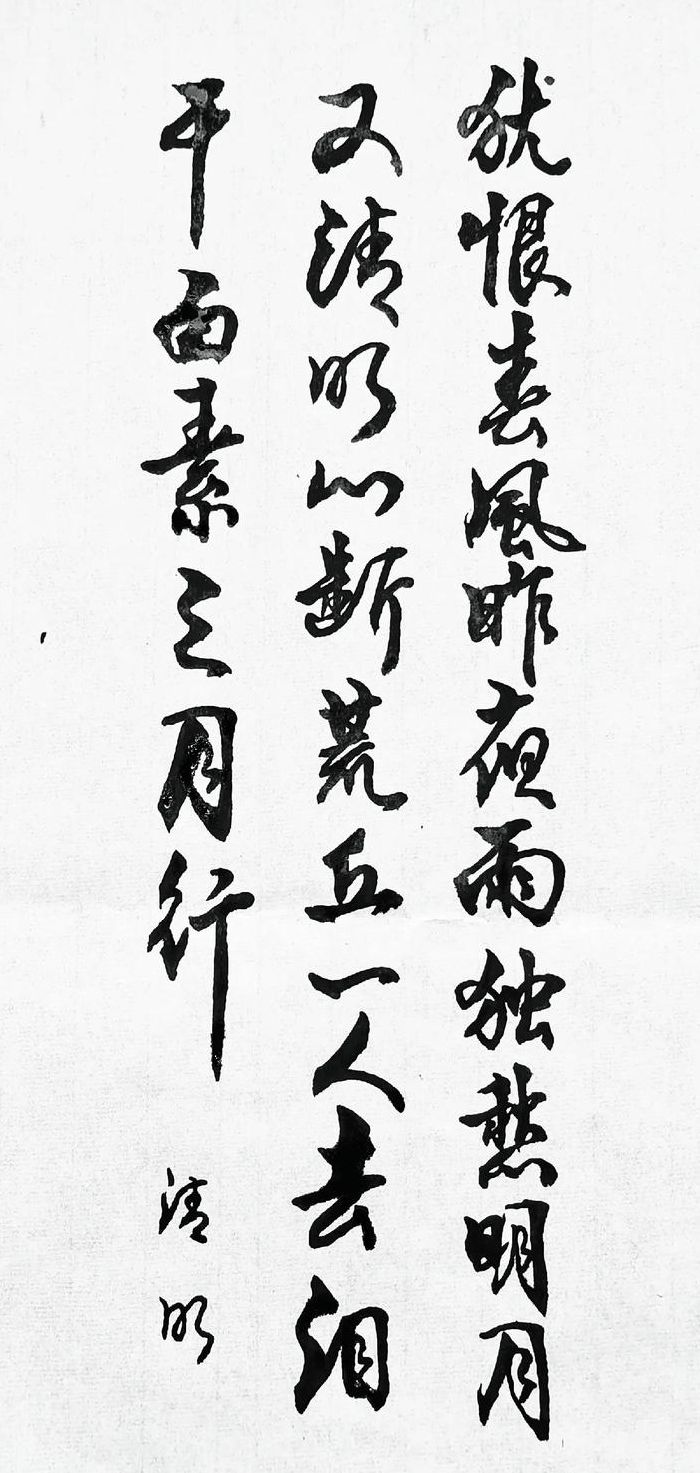 犹恨春風昨夜雨独愁明月
又清明心断荒丘一人去泪
干面素三月行
清明